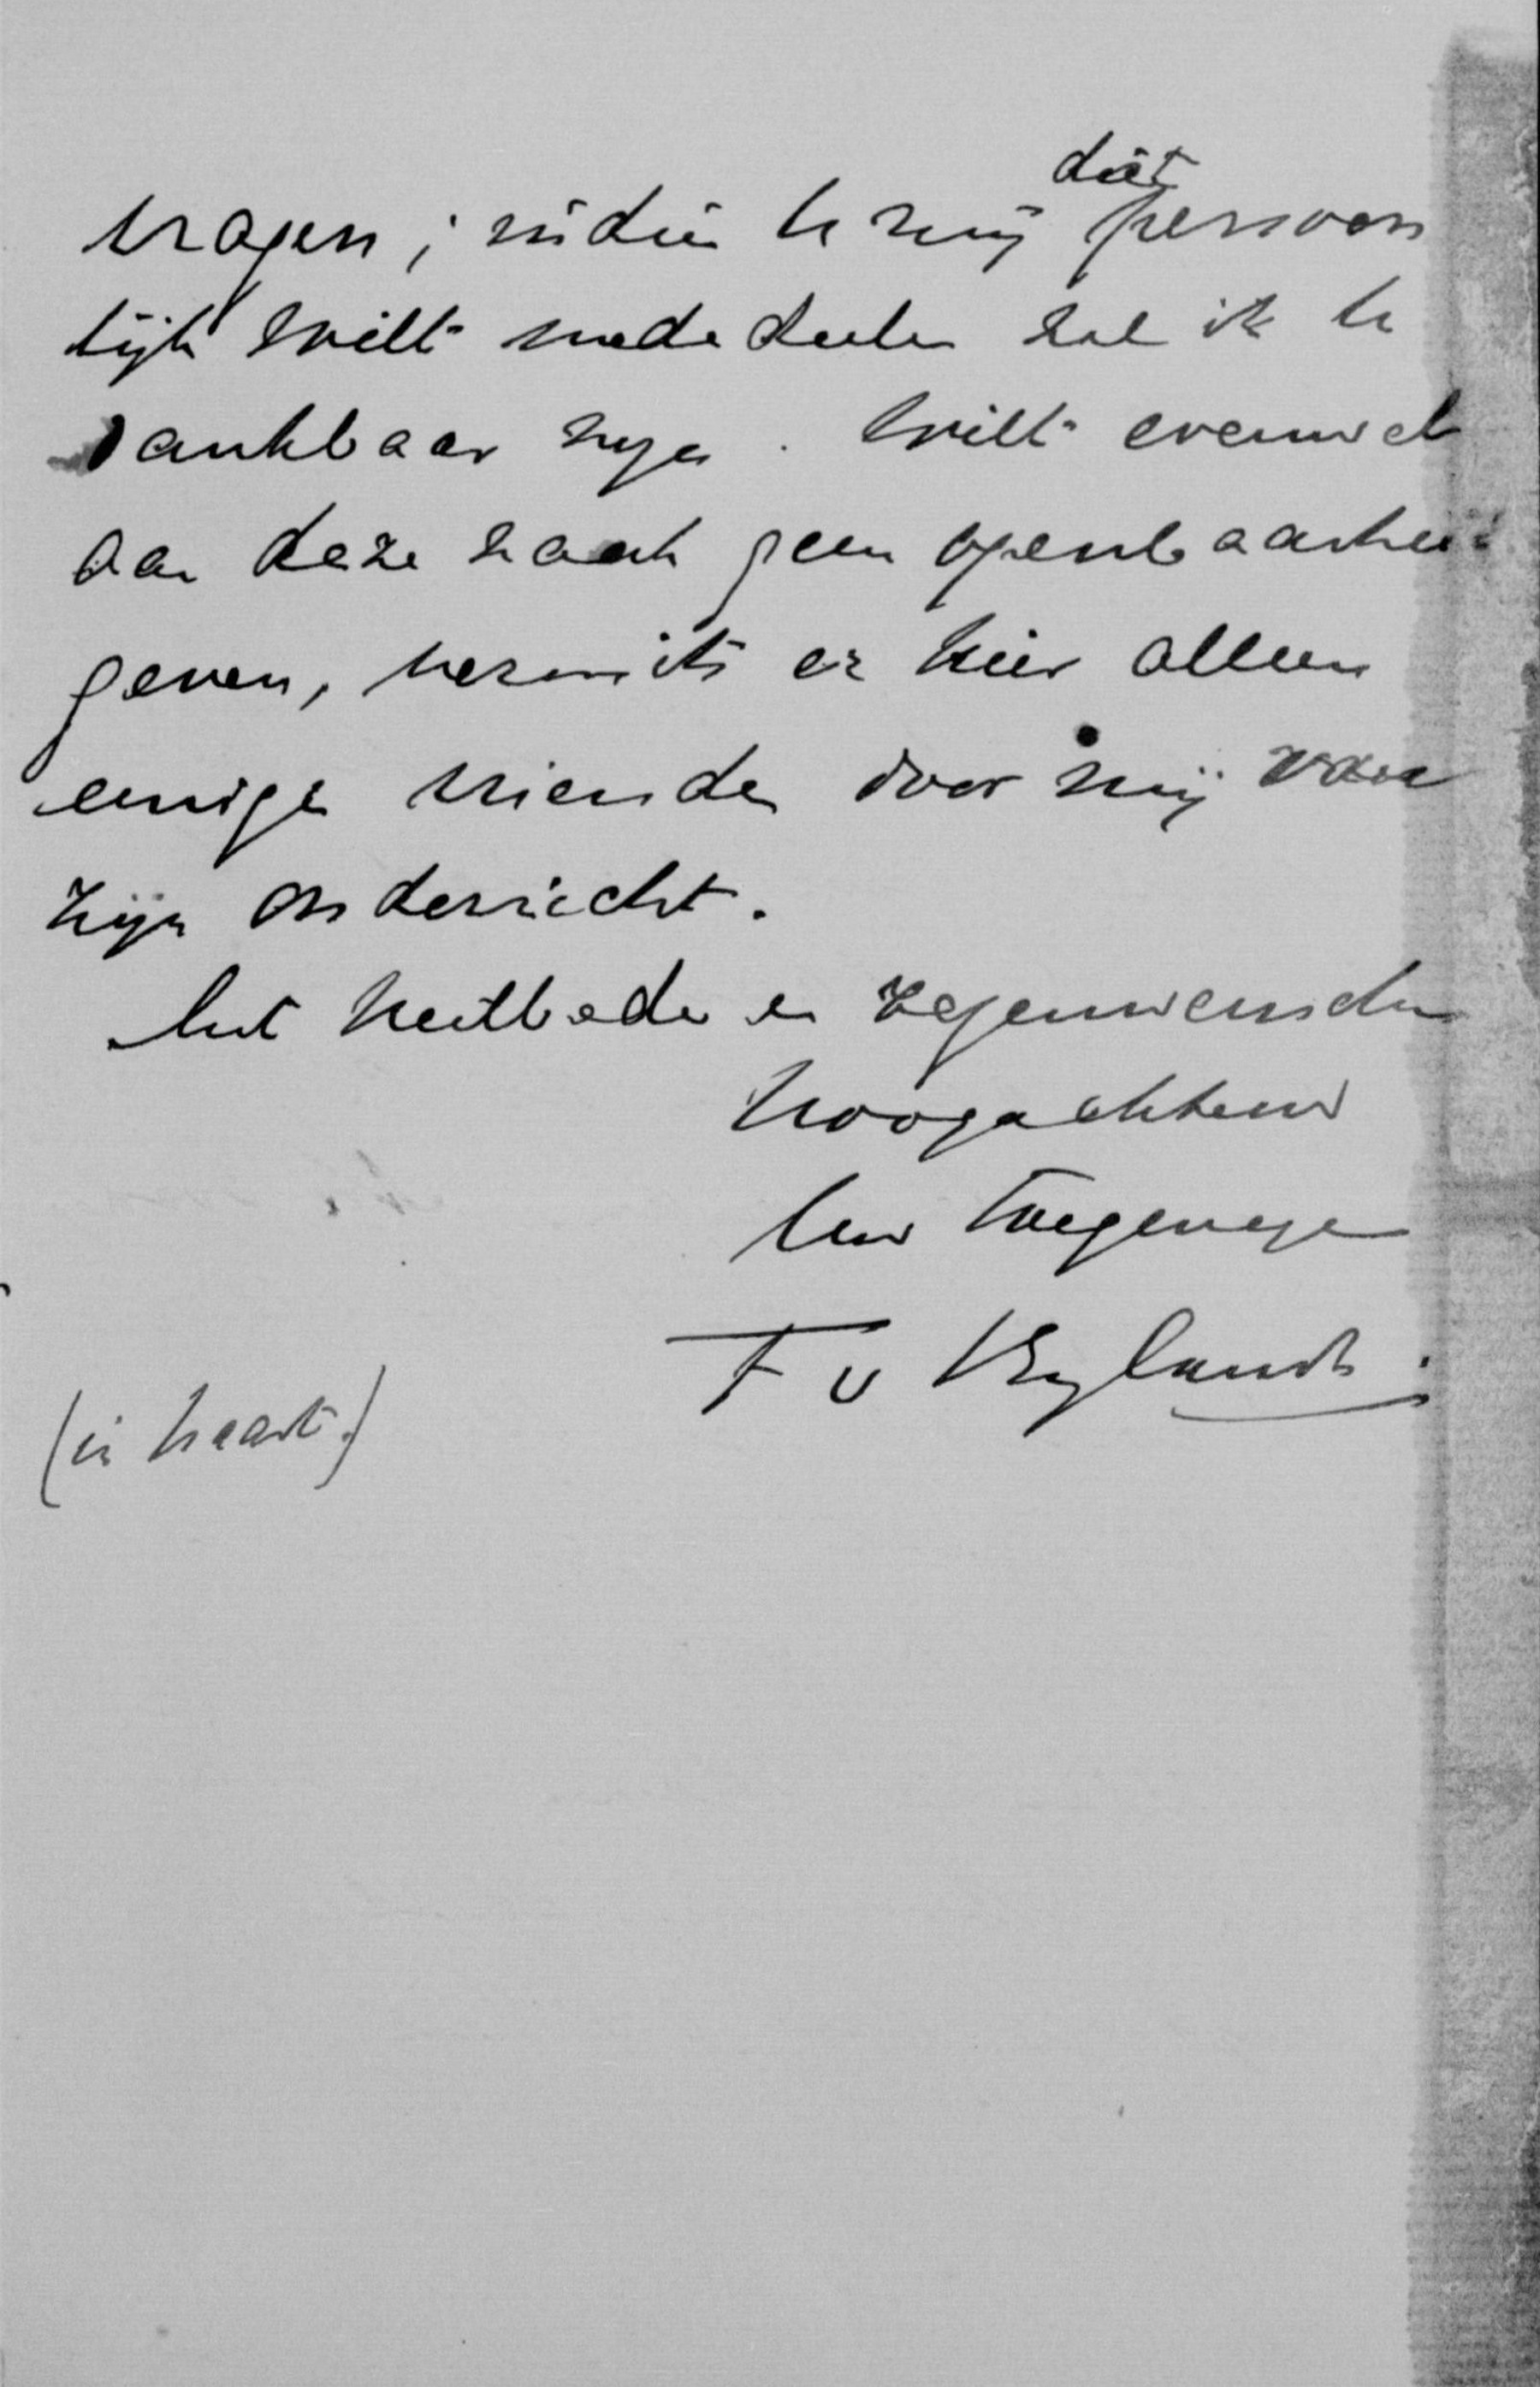 dit
vragen; indien U mij persoon
lijk wilt mededeelen zal ik U
dankbaar zijn. Wilt evenwel
aan deze zaak geen openbaarheid
geven, vermits er hier alleen
eenige vrienden door mij van
zijn onderricht.
Met heilbede en zegenwenschen
Hoogachtend
Uw toegenegen
F v Bylandt.
(in haast)